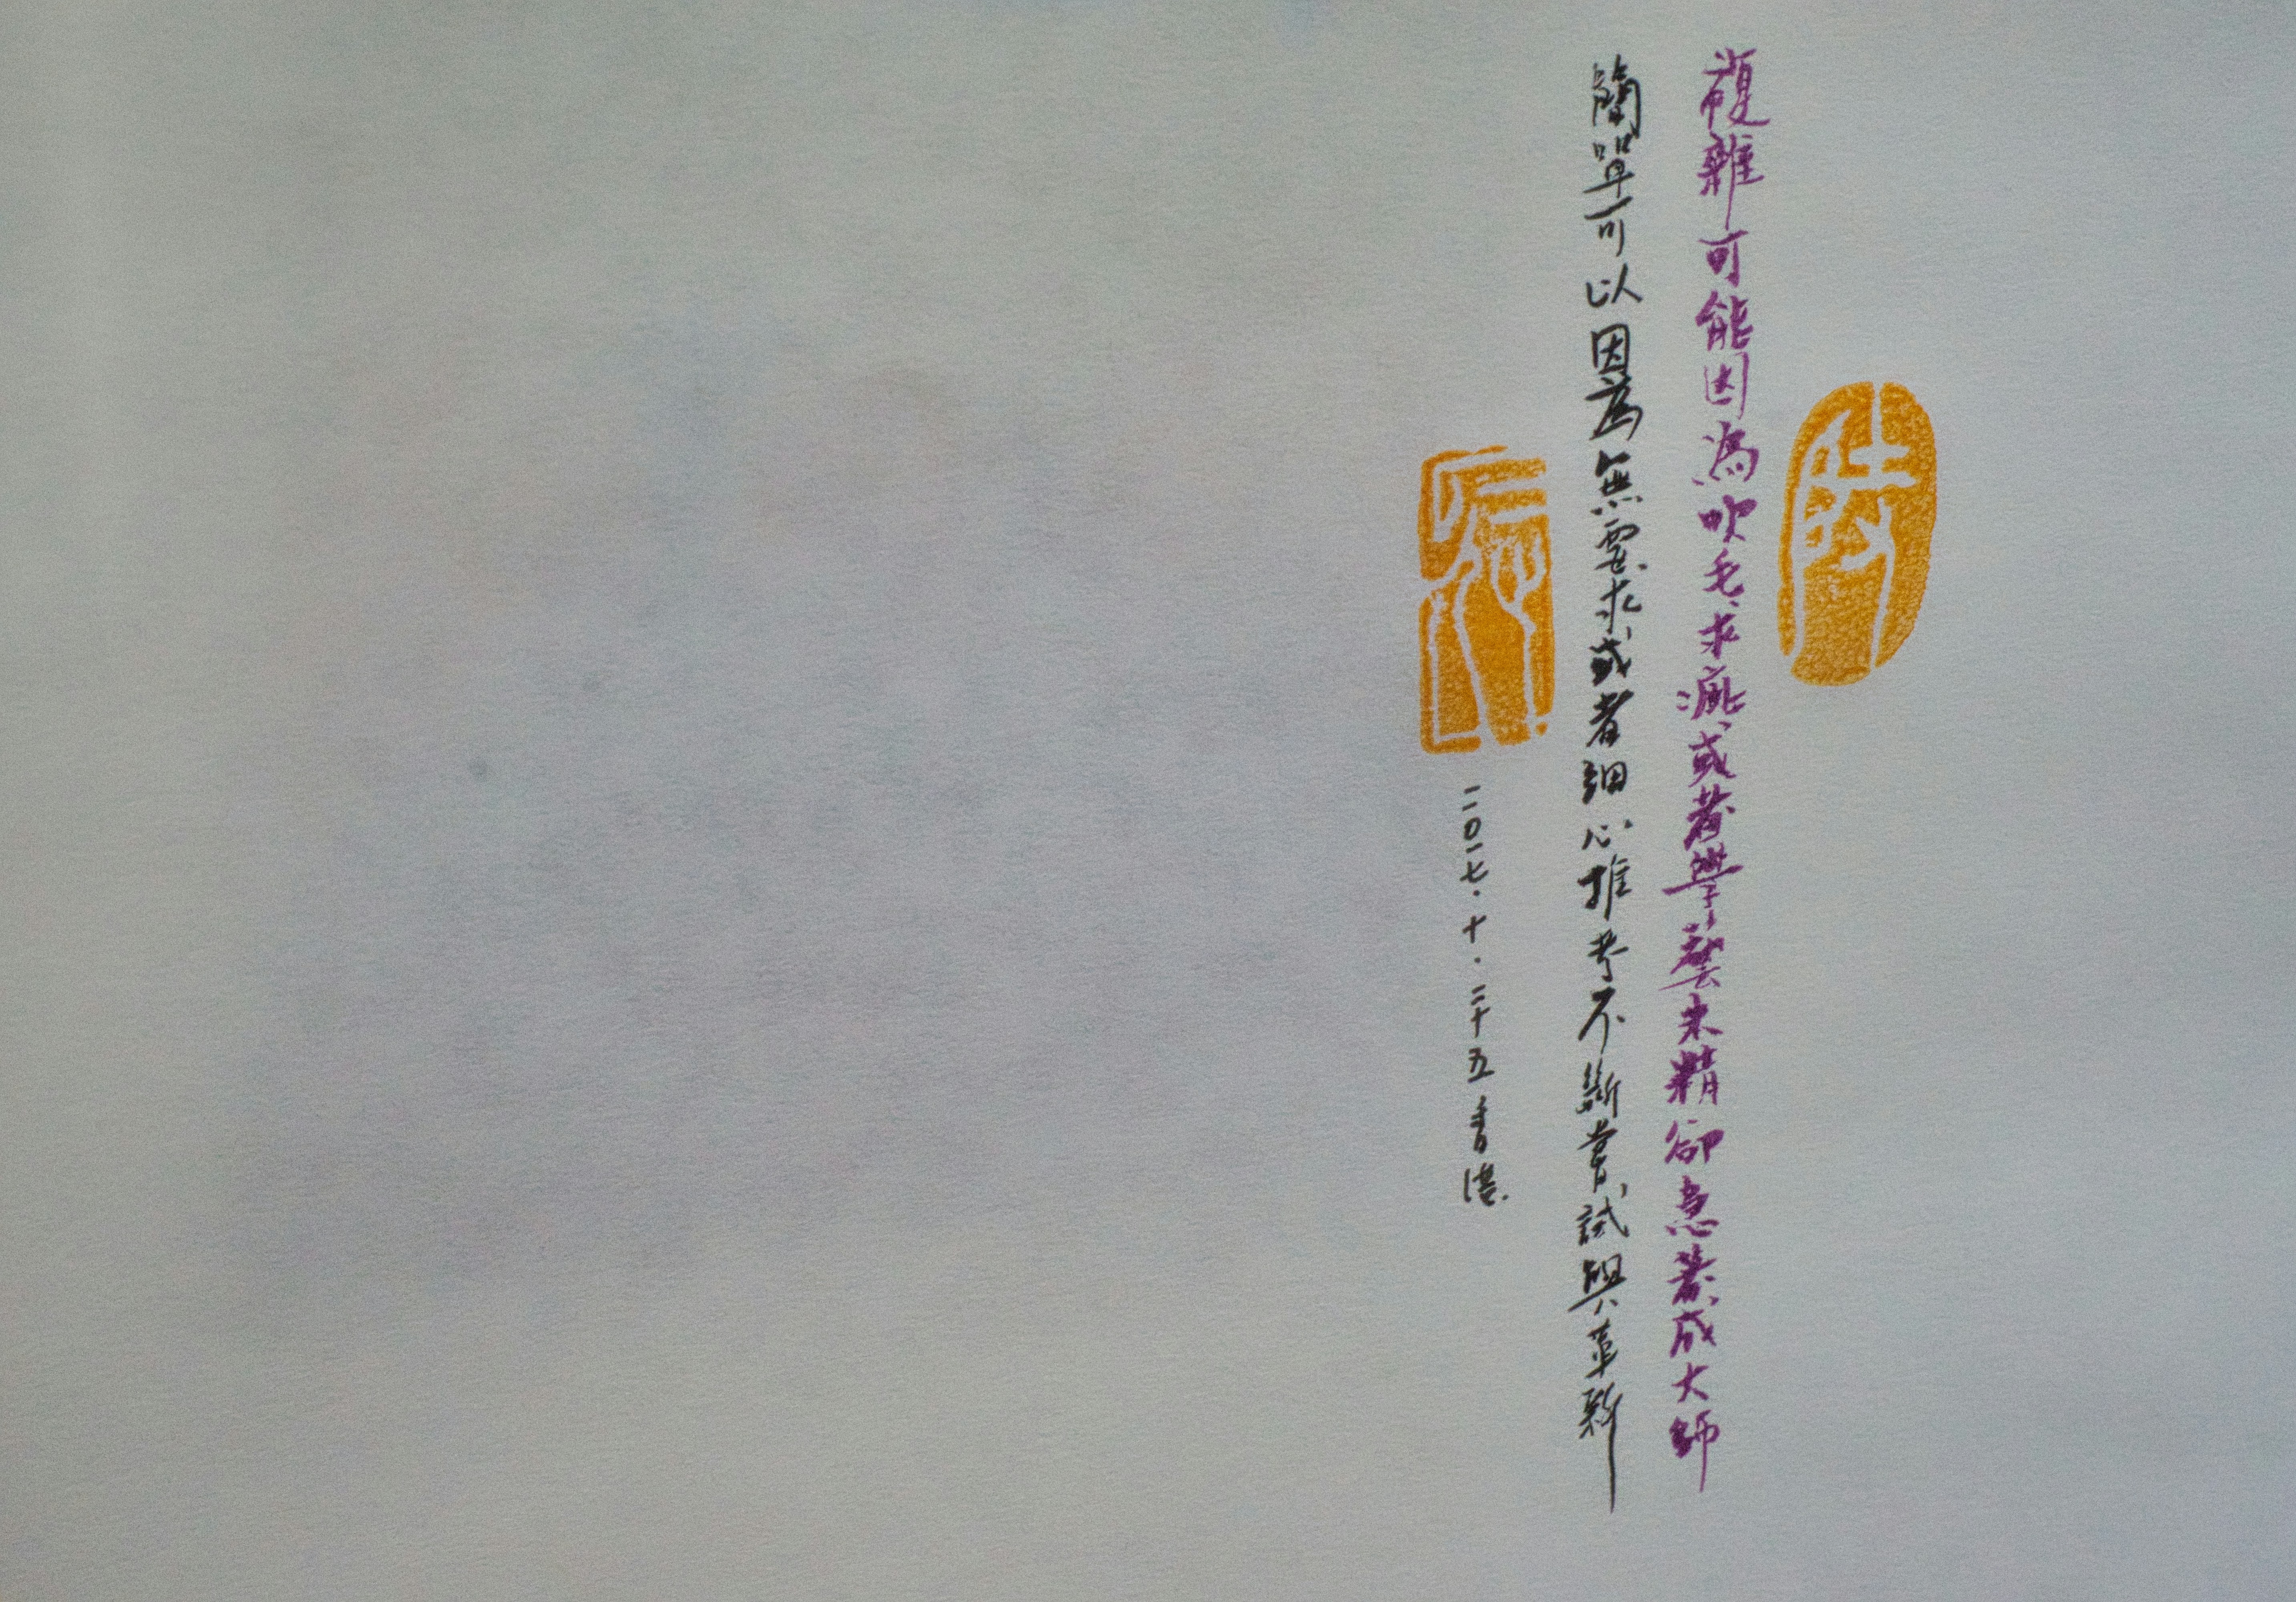 複雜可能因為吹毛求疵或者學藝未精卻急著成大師
簡單可以因為無要求或者細心推考不斷嘗試與革新
二〇一七．十．二十五香港